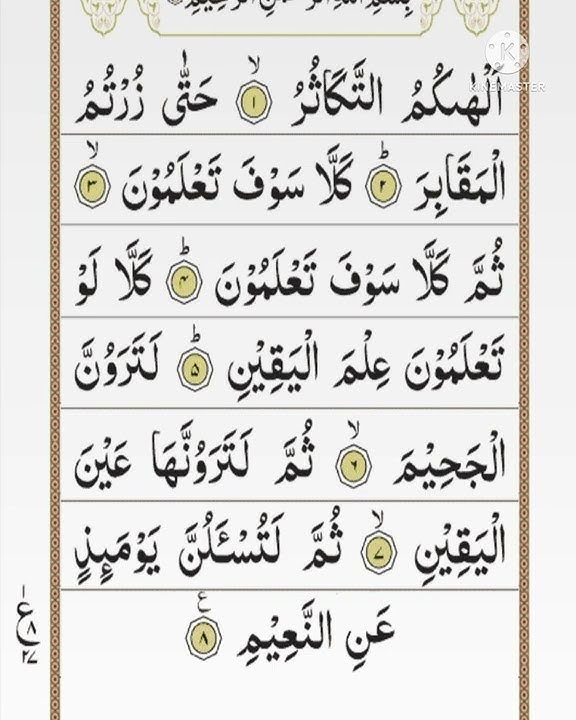 بِسْمِ اللهِ الرَّحْمٰنِ الرَّحِيْمِ
KINEMASTER
اَلْهٰىكُمُ التَّكَاثُرُ ۙ‏﴿۱﴾ حَتّٰى زُرْتُمُ
الْمَقَابِرَ ؕ‏﴿۲﴾ كَلَّا سَوْفَ تَعْلَمُوْنَ ۙ‏﴿۳﴾
ثُمَّ كَلَّا سَوْفَ تَعْلَمُوْنَ ؕ‏﴿۴﴾ كَلَّا لَوْ
تَعْلَمُوْنَ عِلْمَ الْيَقِيْنِ ؕ‏﴿۵﴾ لَتَرَوُنَّ
الْجَحِيْمَ ۙ‏﴿۶﴾ ثُمَّ لَتَرَوُنَّهَا عَيْنَ
الْيَقِيْنِ ۙ‏﴿۷﴾ ثُمَّ لَتُسْـَٔلُنَّ يَوْمَىِٕذٍ
عَنِ النَّعِيْمِ ‏﴿۸﴾ ع
ع ۸ ۲۷